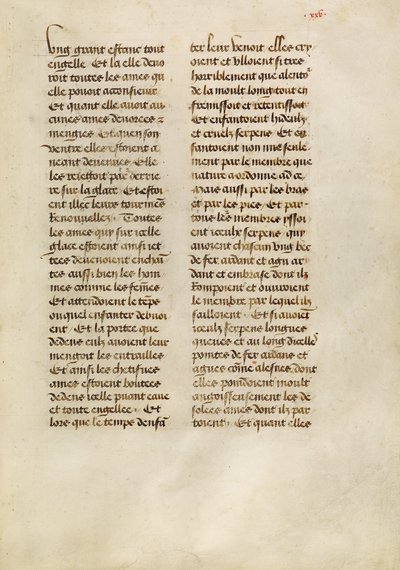 .xxv.
vng grant estanc tout
engelle Et la elle deuo
roit toutes les ames qu
elle pouoit acconsieuir
Et quant elle auoit au
cunes ames deuorees z
mengies Et quen son
ventre elles estoient a
neant deuenues Elle
les reiettoit par derrie
re sur la glace Et estoi
ent illec leurs tourmẽs
Renouuellez Toutes
les ames qui sur icelle
glace estoient ainsi iet
tees deuenoient enchaĩ
tes aussi bien les hom
mes comme les fem̃es
Et attendoient le tẽps
ouquel enfanter deuoi
ent Et la portee que
dedens eulz auoient leur
mengoit les entrailles
Et ainsi les chetifues
ames estoient boutees
dedens icelle puant eaue
et toute engellee Et
lors que le temps denfã
ter leur venoit elles cry
oient et vlloient si tres
horriblement que alentoʳ
de la moult loing tout en
fremissoit et retentissoit
Et enfantoient hideulx
et cruelz serpens Et en
fantoient non mie seule
ment par le membre que
nature a ordonne ad ce
Mais aussi par les bras
et par les piez Et par
tous les membres yssoi
ent iceulx serpens qui
auoient chascun vng bec
de fer aidant et agu ar
dant et embrase dont ilz
Rompoient et ouuroient
le membre par lequel ilz
sailloient Et si auoiẽt
iceulx serpens longues
queues et au long dicelles
pointes de fer aidans et
agues com̃e alesnes dont
elles poindoient moult
angoisseusement les de
solees ames dont ilz par
toient Et quant elles